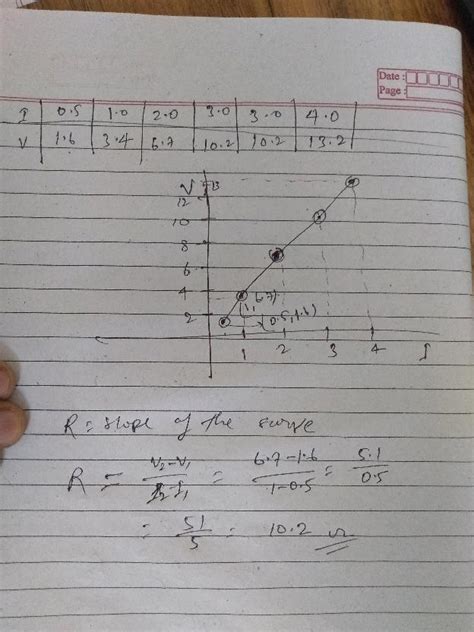 Date :
Page :
I 0.5 1.0 2.0 3.0 3.0 4.0
V 1.6 3.4 6.7 10.2 10.2 13.2
V 13
12
10
8
6
4
(1, 6.7)
(0.5, 1.6)
2
1 2 3 4 I
R = slope of the curve
R = V2-V1 / I2-I1 = 6.7-1.6 / 1-0.5 = 5.1 / 0.5
= 51 / 5 = 10.2 Ω